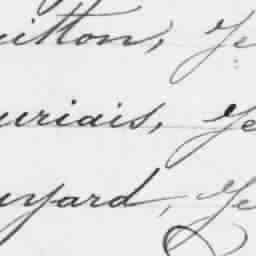 uitton, Ge
uriais, Ge
uyard, Ge